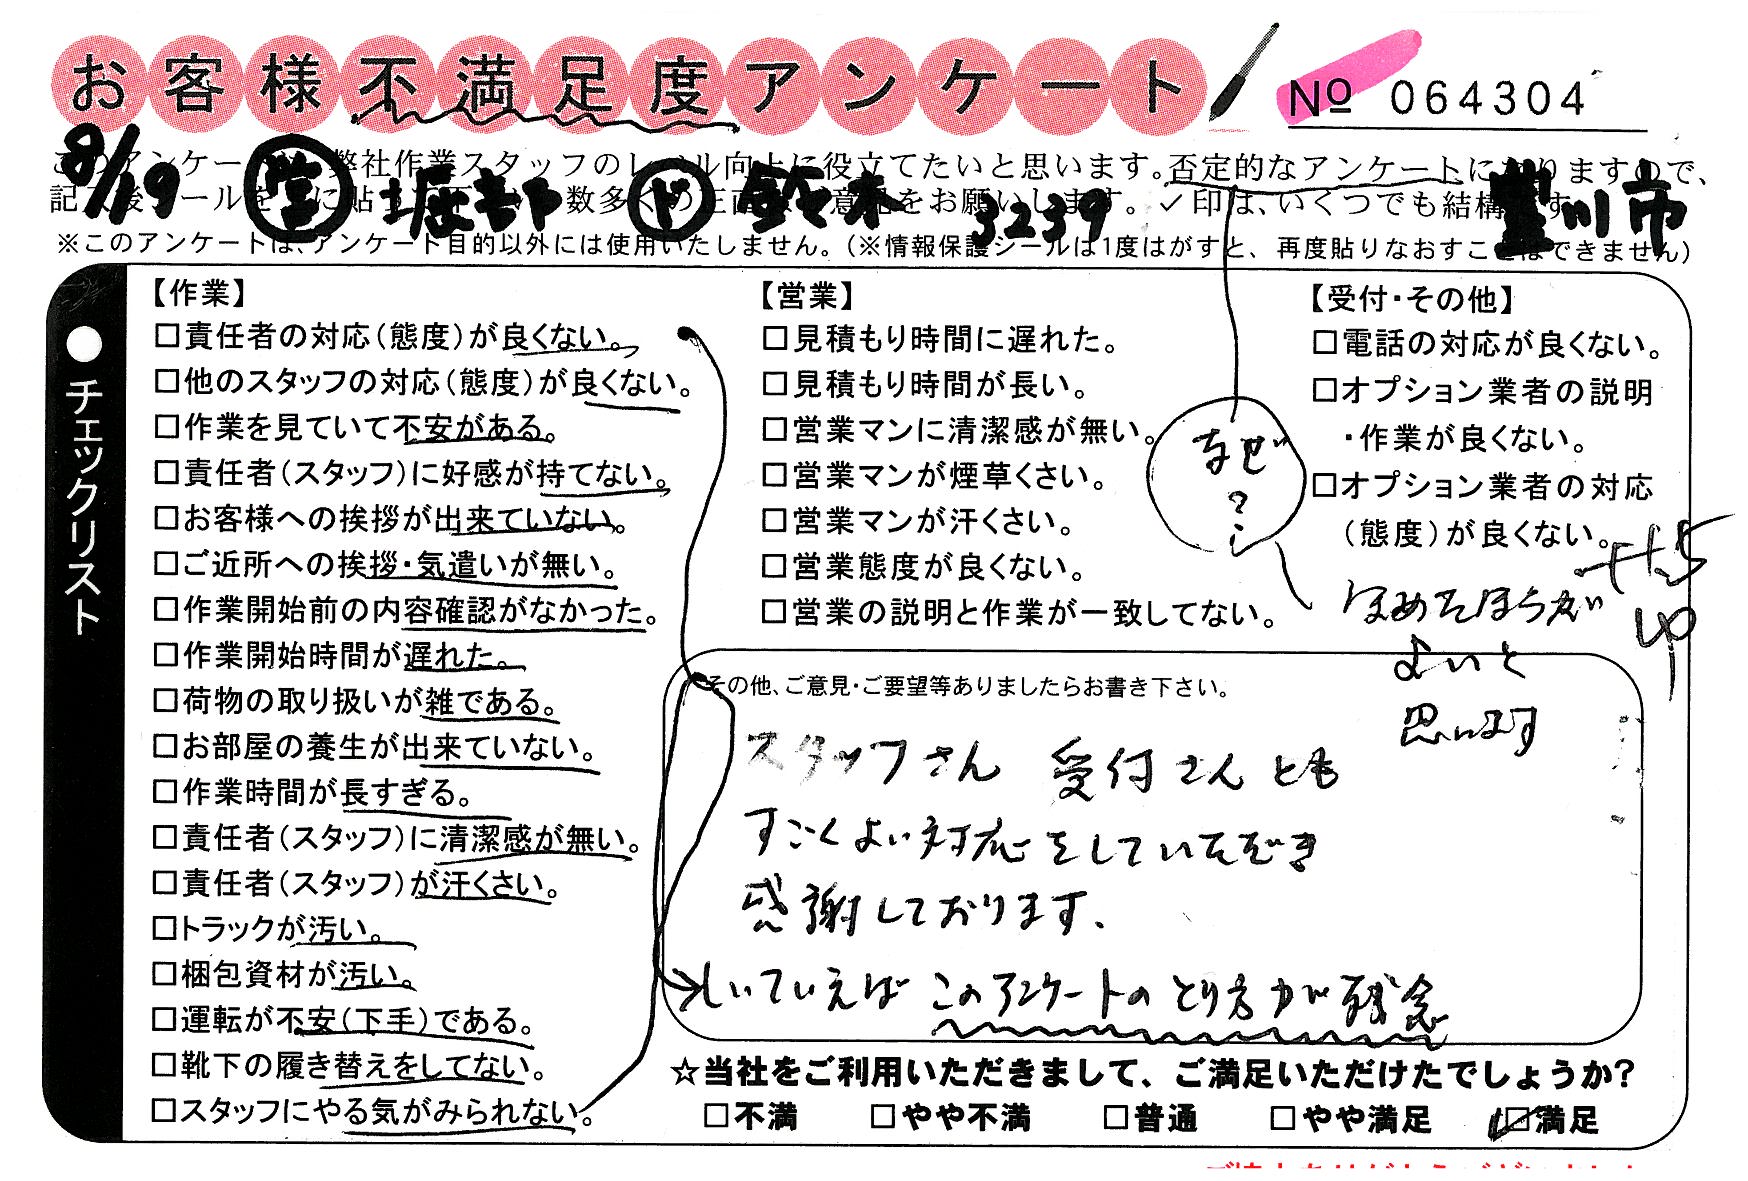 お客様不満足度アンケート
№ 064304
8/19 営 堀部 ド 鈴木 3239 豊川市
このアンケートは、弊社作業スタッフのレベル向上に役立てたいと思います。否定的なアンケートになりますので、
記入後シールを に貼って下さい。数多くの正直な意見をお願いします。✓印は、いくつでも結構です。
※このアンケートは、アンケート目的以外には使用いたしません。(※情報保護シールは1度はがすと、再度貼りなおすことはできません)
●チェックリスト
【作業】
□責任者の対応(態度)が良くない。
□他のスタッフの対応(態度)が良くない。
□作業を見ていて不安がある。
□責任者(スタッフ)に好感が持てない。
□お客様への挨拶が出来ていない。
□ご近所への挨拶・気遣いが無い。
□作業開始前の内容確認がなかった。
□作業開始時間が遅れた。
□荷物の取り扱いが雑である。
□お部屋の養生が出来ていない。
□作業時間が長すぎる。
□責任者(スタッフ)に清潔感が無い。
□責任者(スタッフ)が汗くさい。
□トラックが汚い。
□梱包資材が汚い。
□運転が不安(下手)である。
□靴下の履き替えをしてない。
□スタッフにやる気がみられない。
【営業】
□見積もり時間に遅れた。
□見積もり時間が長い。
□営業マンに清潔感が無い。
□営業マンが煙草くさい。
□営業マンが汗くさい。
□営業態度が良くない。
□営業の説明と作業が一致してない。
【受付・その他】
□電話の対応が良くない。
□オプション業者の説明
・作業が良くない。
□オプション業者の対応
(態度)が良くない。
なぜ
?
ほめたほうが
よいと
思います
その他、ご意見・ご要望等ありましたらお書き下さい。
スタッフさん 受付さんとも
すごくよい対応をしていただき
感謝しております。
→しいていえばこのアンケートのとり方が残念
☆当社をご利用いただきまして、ご満足いただけたでしょうか?
□不満 □やや不満 □普通 □やや満足 ☑満足